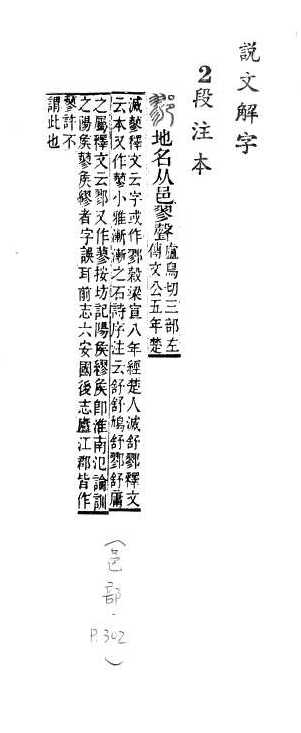 說文解字
2段注本
地名从邑翏聲
盧鳥切三部左
傳文公五年楚
滅蓼釋文云字或作鄝穀梁宣八年經楚人滅舒鄝釋文
云本又作蓼小雅漸漸之石詩序注云舒舒鳩舒鄝舒庸
之屬釋文云鄝又作蓼按坊記陽矦繆矦卽淮南氾論訓
之陽矦蓼矦繆者字誤耳前志六安國後志廬江郡皆作
蓼許不
謂此也
(邑部. P.302)